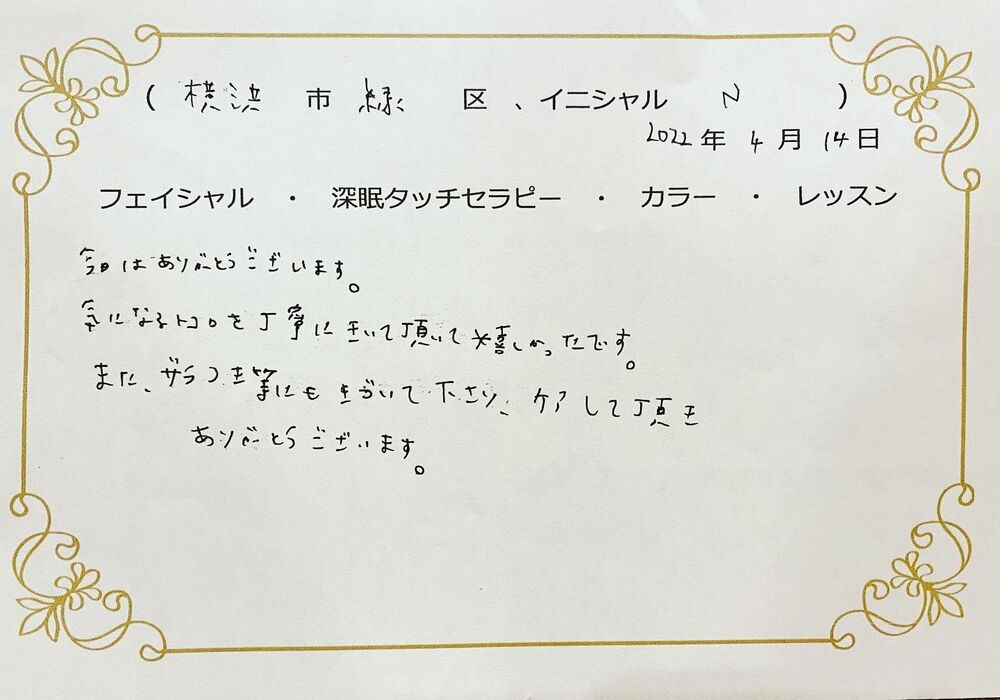 ( 横浜 市 緑 区 、イニシャル N )
2022 年 4 月 14 日
フェイシャル ・ 深眠タッチセラピー ・ カラー ・ レッスン
今日はありがとうございます。
気になるトコロを丁寧にきいて頂いて嬉しかったです。
また、ザラつき等にも気づいて下さり、ケアして頂き
ありがとうございます。